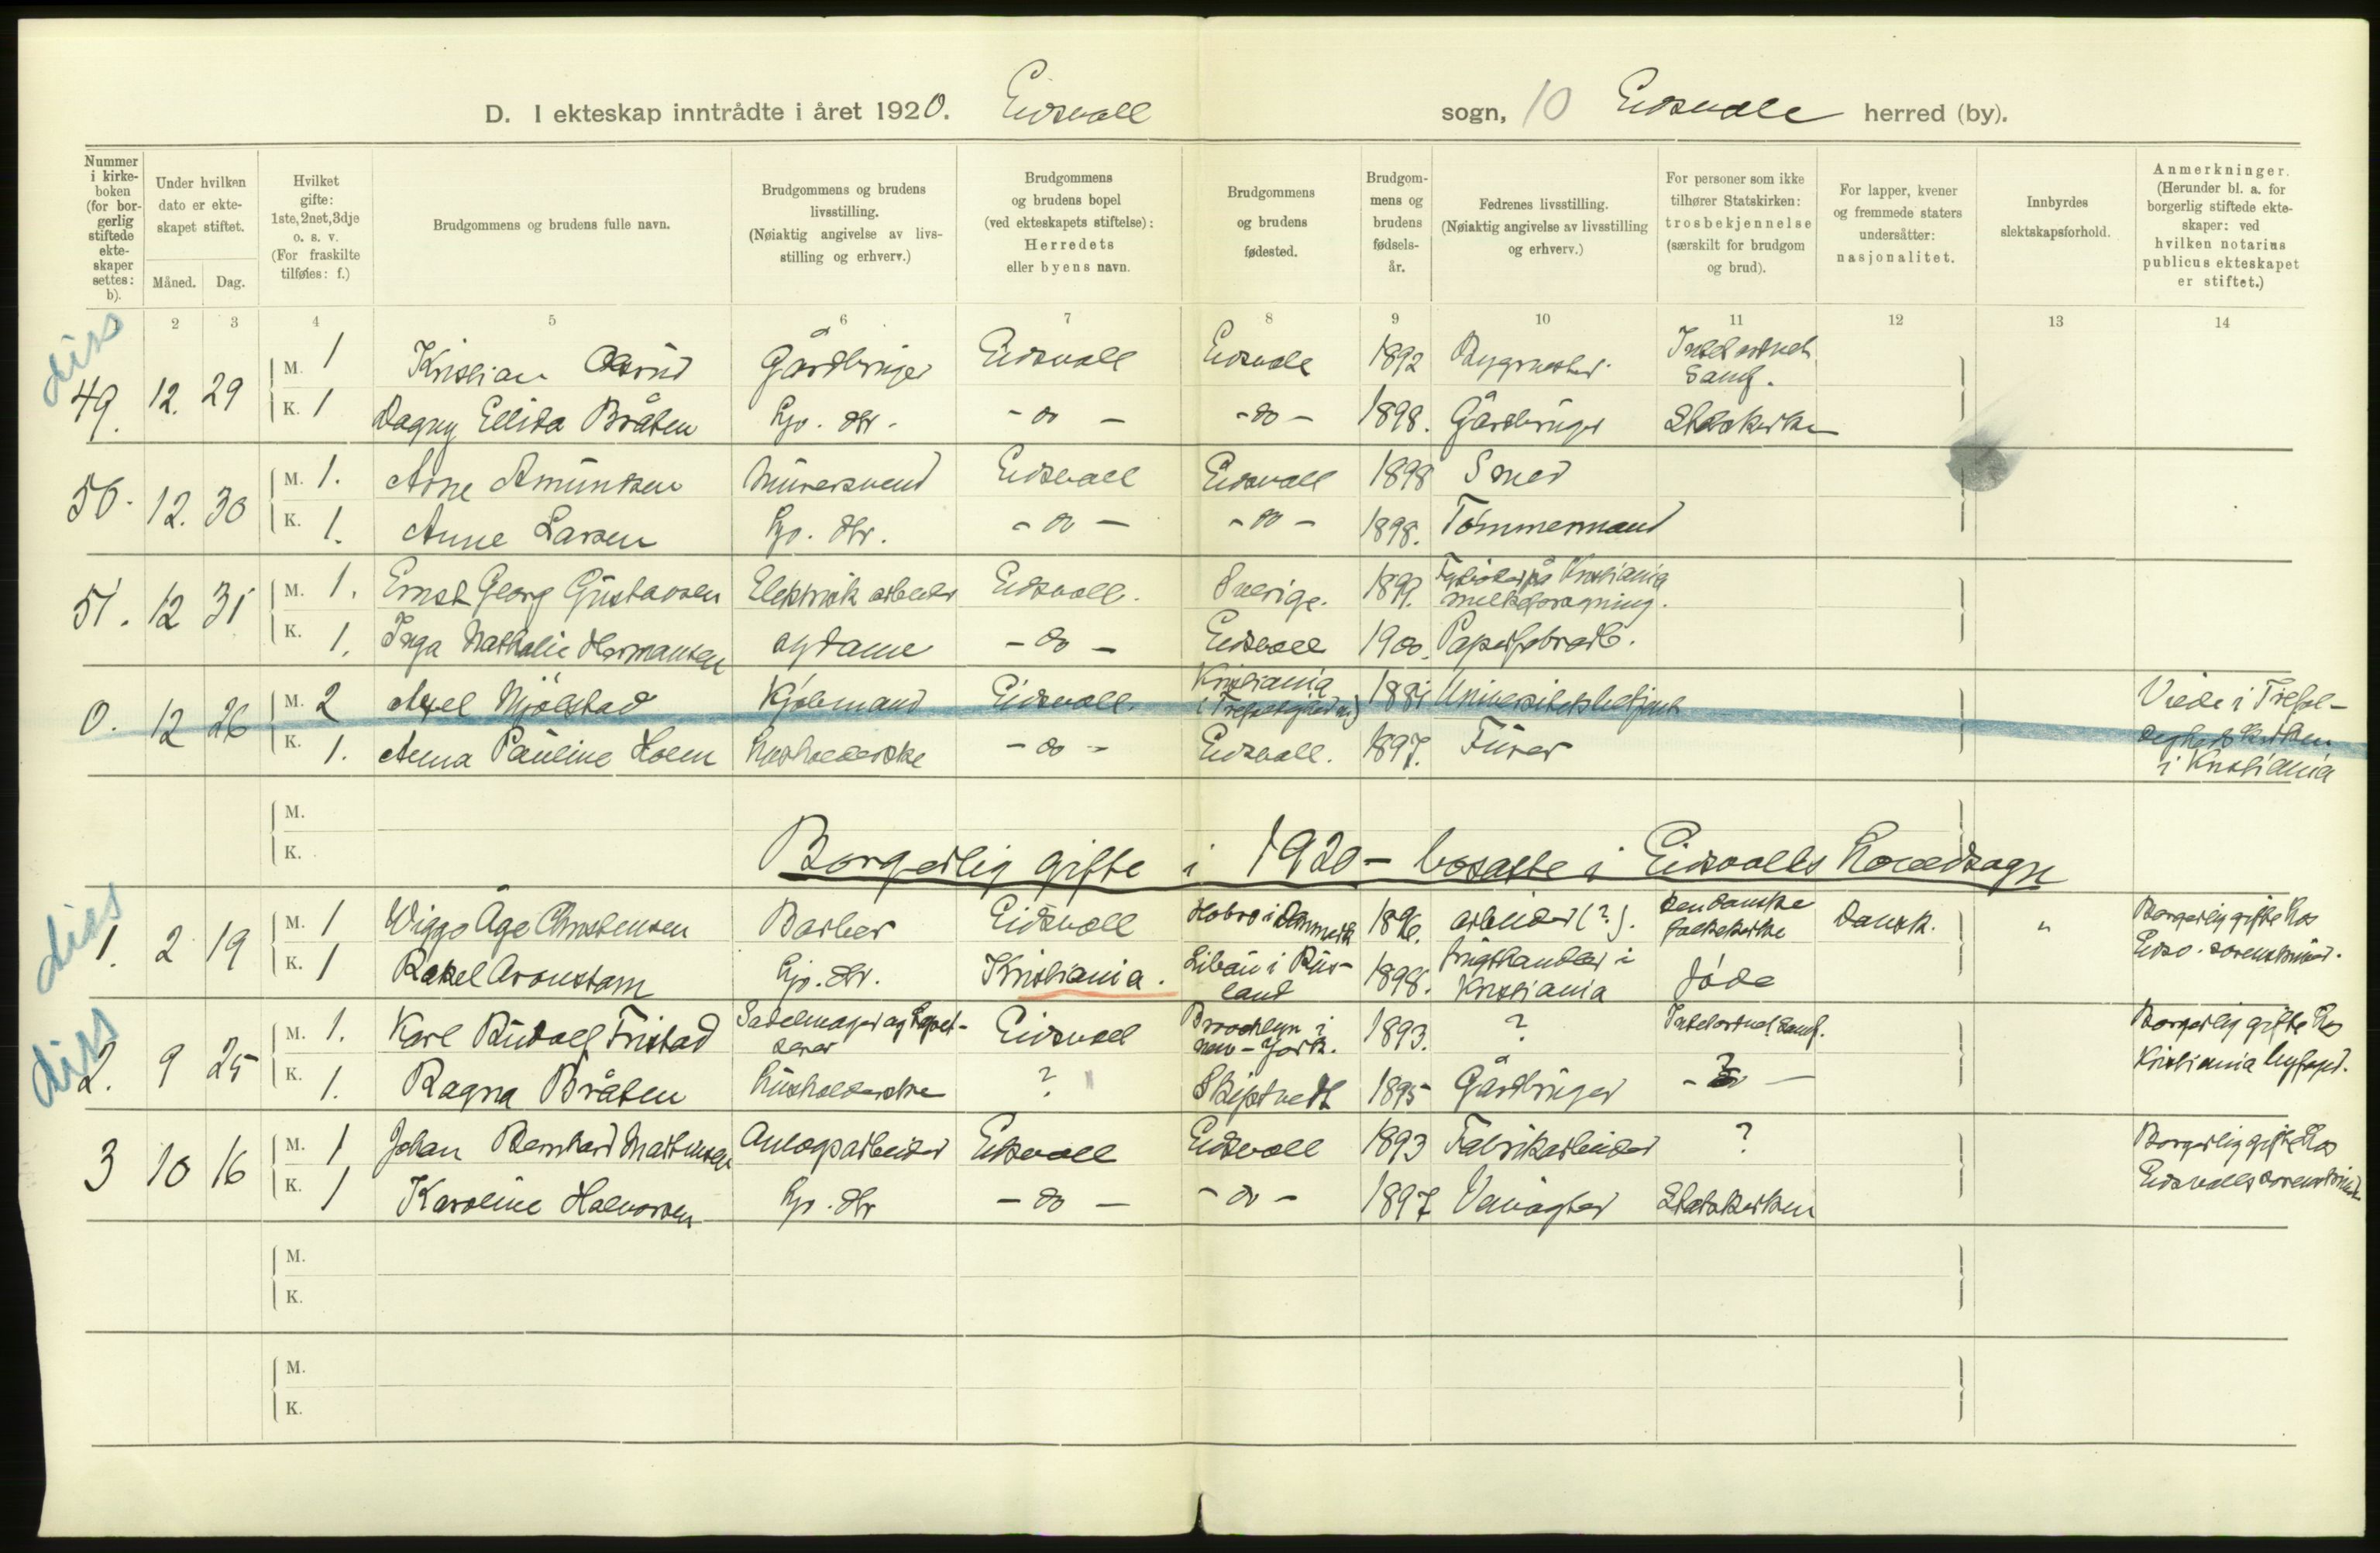 D. I ekteskap inntrådte i året 1920. Eidsvoll sogn, 10 Eidsvoll herred (by).
Nummer i kirke-boken (for bor-gerlig stiftede ekte-skaper settes: b).
Under hvilken dato er ekte-skapet stiftet.
Måned. Dag.
Hvilket gifte: 1ste, 2net, 3dje o. s. v. (For fraskilte tilføies: f.)
Brudgommens og brudens fulle navn.
Brudgommens og brudens livsstilling. (Nøiaktig angivelse av livs-stilling og erhverv.)
Brudgommens og brudens bopel (ved ekteskapets stiftelse): Herredets eller byens navn.
Brudgommens og brudens fødested.
Brudgom-mens og brudens fødsels-år.
Fedrenes livsstilling. (Nøiaktig angivelse av livsstilling og erhverv.)
For personer som ikke tilhører Statskirken: trosbekjennelse (særskilt for brudgom og brud).
For lapper, kvener og fremmede staters undersåtter: nasjonalitet.
Innbyrdes slektskapsforhold.
Anmerkninger. (Herunder bl. a. for borgerlig stiftede ekte-skaper: ved hvilken notarius publicus ekteskapet er stiftet.)
1 2 3 4 5 6 7 8 9 10 11 12 13 14
diss
49. 12. 29 M. 1 Kristian Gårdbruger Eidsvoll Eidsvoll 1892 Bygmester Samf.
K. 1 Dagny Ellida Bråten Hjv. dtr. - do - - do - 1898. Gårdbruger Statskirken
50. 12. 30 M. 1. Arne Amundsen Murersvend Eidsvoll Eidsvoll 1898 Smed
K. 1. Anne Larsen Hjv. dtr. - do - - do - 1898. Tømmermand
51. 12 31 M. 1. Ernst Georg Gustavsen Elektrisk arbeider Eidsvoll. Sverige. 1899. Kristiania melkeforsyning.
K. 1. Inga Nathalie Hermansen sydame - do - Eidsvoll 1900. Papirfabrarb.
0. 12 26 M. 2 Axel Mjølstad Kjøbmand Eidsvoll. Kristiania 1881 Universitetsbetjent Viede i Trefol-
K. 1. Anna Pauline Holm Husholderske - do - Eidsvoll. 1897. Furer dighetskirken
i Kristiania
M.
K.
Borgerlig gifte i 1920 - bosatte i Eidsvolls hovedsogn
diss
1. 2 19 M. 1 Wiggo Åge Christensen Barber Eidsvoll Hobro i Danmark 1896. arbeider (?). den danske folkekirke Dansk. " Borgerlig gifte hos
K. 1 Rakel Aronstam Hjv. dtr. Kristiania. Libau i Rus-land 1898. frugthandler i Kristiania Jøde Eidsv. sorenskriver.
diss
2. 9 25 M. 1. Karl Rudolf Fristad Sadelmager og tapet-serer Eidsvoll Broocklyn i New-York. 1893. ? Borgerlig gifte hos
K. 1. Ragna Bråten Husholderske ? Skiptvedt 1895 Gårdbruger - do - Kristiania byfoged.
3 10 16 M. 1 Johan Bernhard Martinsen Anlegsarbeider Eidsvoll Eidsvoll 1893 Fabrikarbeider ? Borgerlig gifte hos
K. 1 Karoline Halvorsen Hjv. dtr - do - - do - 1897 Statskirken Eidsvolls sorenskriver
M.
K.
M.
K.